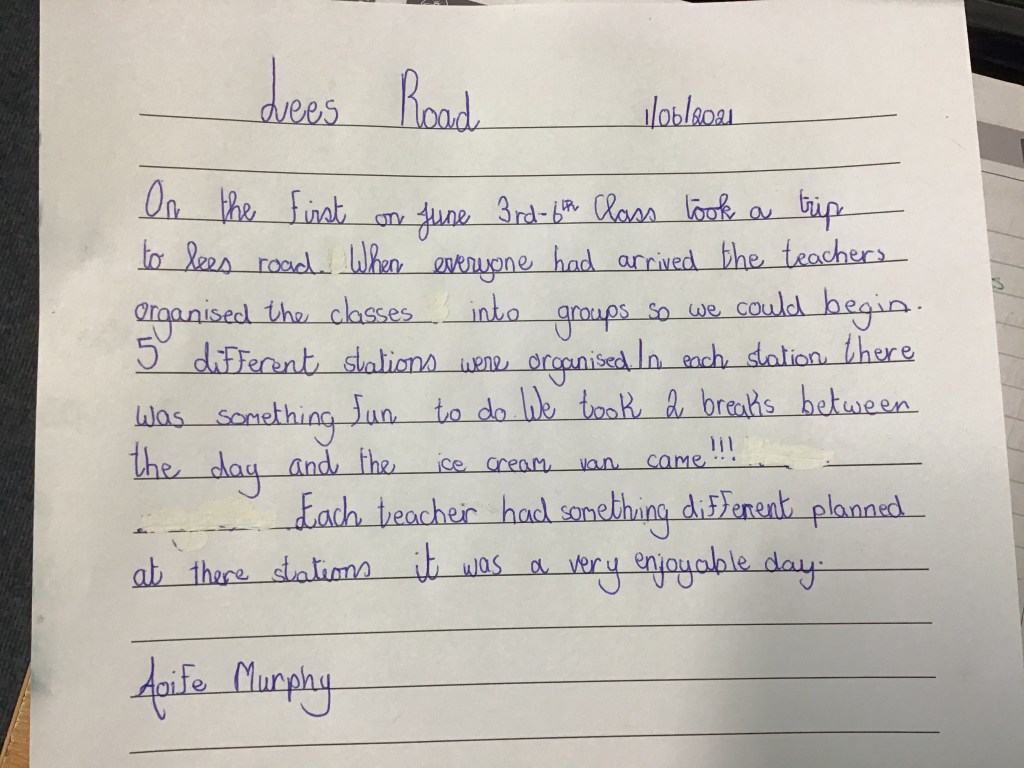 Lees Road 1/06/2021
On the first on June 3rd-6th Class took a trip
to lees road. When everyone had arrived the teachers
organised the classes into groups so we could begin.
5 different stations were organised. In each station there
was something fun to do. We took 2 breaks between
the day and the ice cream van came!!!
Each teacher had something different planned
at there stations it was a very enjoyable day.
Aoife Murphy